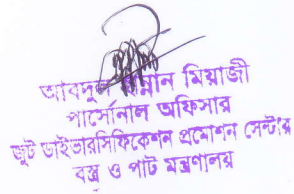 আবদুল মান্নান মিয়াজী
পার্সোনাল অফিসার
জুট ডাইভারসিফিকেশন প্রমোশন সেন্টার
বস্ত্র ও পাট মন্ত্রণালয়